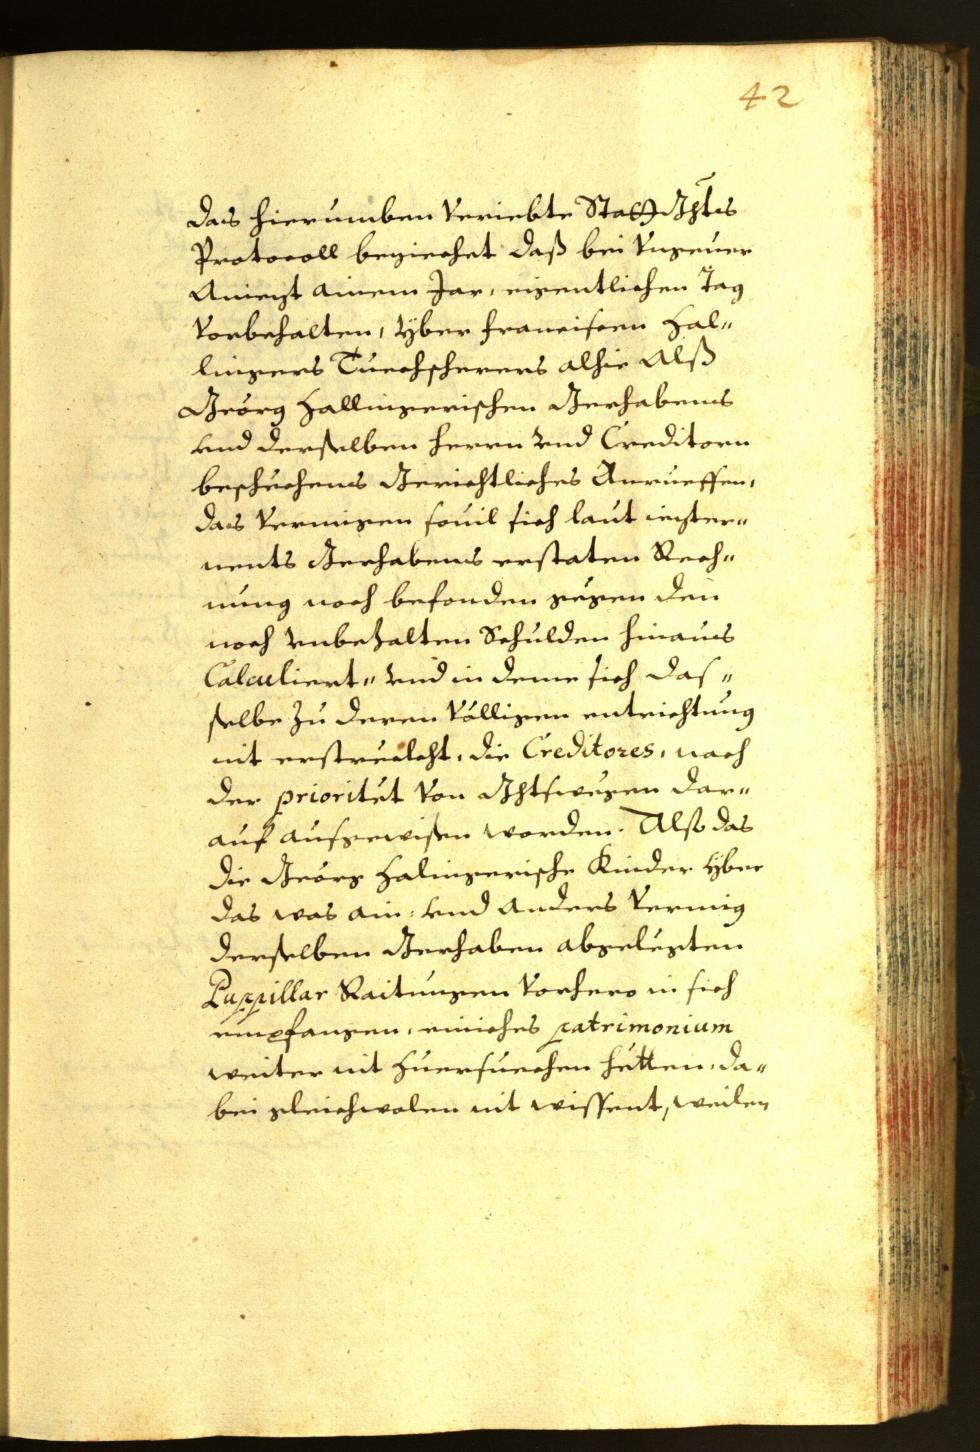 42
das hierumben veriebte Statt Ghts
Protocoll bezeichet daß bei unserer
Aniezt ainem Jar, eigentlichen Tag
vorbehalten, yber Francisen Hal¬
lingers Tuechscherers alhie Alß
Geörg Hallingerischen Gerhabens
und derselben Herrn und Creditorn
beschechens Gerichtliches Anrueffen,
das Vermigen sovil sich laut iezter¬
nents Gerhabens erstaten Rech¬
nung noch befonden gegen den
noch unbezalten Schulden hinaus
Calculiert" und in deme sich das¬
selbe zu deren völligen entrichtung
nit erströckht, die Creditores, nach
der prioritet von Ghtswegen dar¬
auf aufgewisen worden. Also das
die Geörg Halingerische Kinder yber
das was ain: und anders vermig
derselben Gerhaben abgelegten
Puppillar Raitungen vorhero in sich
empfangen, einiches patrimonium
weiter nit zuersuechen hetten, da¬
bei gleichwolen nit wissent, weilen